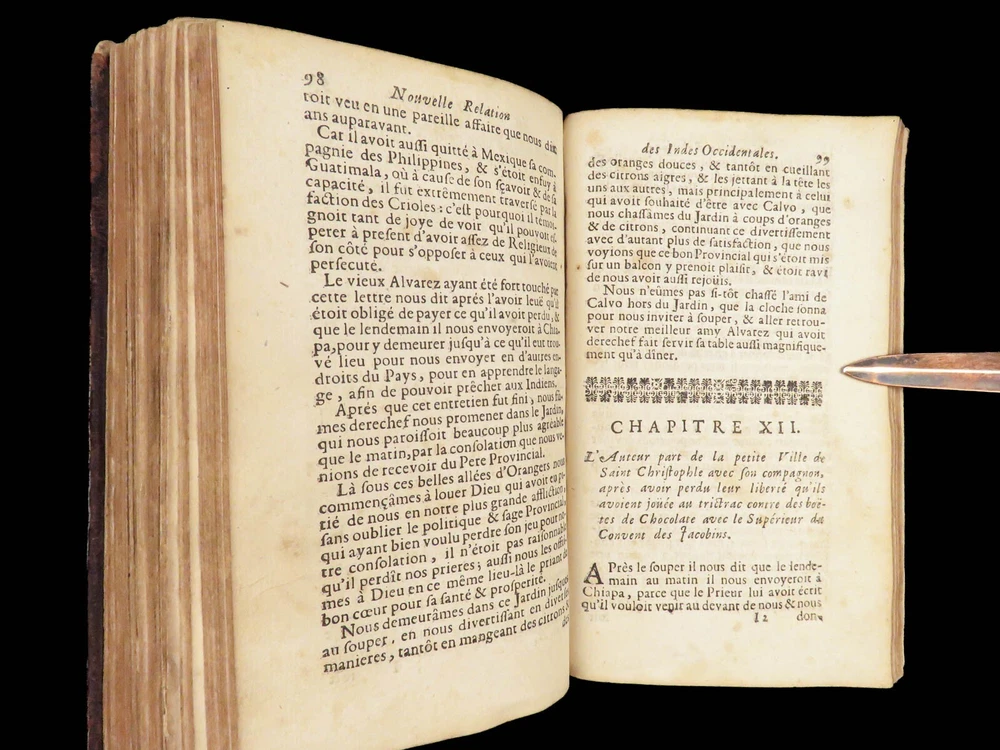 98
Nouvelle Relation
toit veu en une pareille affaire que nous dix
ans auparavant.
Car il avoit aussi quitté à Mexique sa com-
pagnie des Philippines, & s'étoit enfuy à
Guatimala, où à cause de son sçavoir & de sa
capacité, il fut extrêmement traversé par la
faction des Crioles: c'est pourquoi il temoi-
gnoit tant de joye de voir qu'il pouvoit es-
perer à present d'avoir assez de Religieux de
son côté pour s'opposer à ceux qui l'avoient
persecuté.
Le vieux Alvarez ayant été fort touché par
cette lettre nous dit aprés l'avoir leuë qu'il
étoit obligé de payer ce qu'il avoit perdu, &
que le lendemain il nous envoyeroit à Chia-
pa, pour y demeurer jusqu'à ce qu'il eut trou-
vé lieu pour nous envoyer en d'autres en-
droits du Pays, pour en apprendre le langa-
ge, afin de pouvoir prêcher aux Indiens.
Aprés que cet entretien fut fini, nous fû-
mes derechef nous promener dans le Jardin,
qui nous paroissoit beaucoup plus agréable
que le matin, par la consolation que nous ve-
nions de recevoir du Pere Provincial.
Là sous ces belles allées d'Orangers nous
commençâmes à louer Dieu qui avoit eu pi-
tié de nous en notre plus grande affliction,
sans oublier le politique & sage Provincial
qui ayant bien voulu perdre son jeu pour no-
tre consolation, il n'étoit pas raisonnable
qu'il perdît nos prieres; aussi nous les offrî-
mes à Dieu en ce même lieu-là le priant de
bon cœur pour sa santé & prosperité.
Nous demeurâmes dans ce Jardin jusques
au souper, en nous divertissant en diverses
manieres, tantôt en mangeant des citrons &
des Indes Occidentales.
99
des oranges douces, & tantôt en cueillant
des citrons aigres, & les jettant à la tête les
uns aux autres, mais principalement à celui
qui avoit souhaité d'être avec Calvo, que
nous chassâmes du Jardin à coups d'oranges
& de citrons, continuant ce divertissement
avec d'autant plus de satisfaction, que nous
voyions que ce bon Provincial qui s'étoit mis
sur un balcon y prenoit plaisir, & étoit ravi
de nous avoir aussi rejoüis.
Nous n'eûmes pas si-tôt chassé l'ami de
Calvo hors du Jardin, que la cloche sonna
pour nous inviter à souper, & aller retrou-
ver notre meilleur amy Alvarez qui avoit
derechef fait servir sa table aussi magnifique-
ment qu'à dîner.
CHAPITRE XII.
L'Auteur part de la petite Ville de
Saint Christophle avec son compagnon,
après avoir perdu leur liberté qu'ils
avoient joüée au trictrac contre des boë-
tes de Chocolate avec le Supérieur du
Convent des Jacobins.
APrès le souper il nous dit que le lende-
main au matin il nous envoyeroit à
Chiapa, parce que le Prieur lui avoit écrit
qu'il vouloit venir au devant de nous & nous
I 2 don-